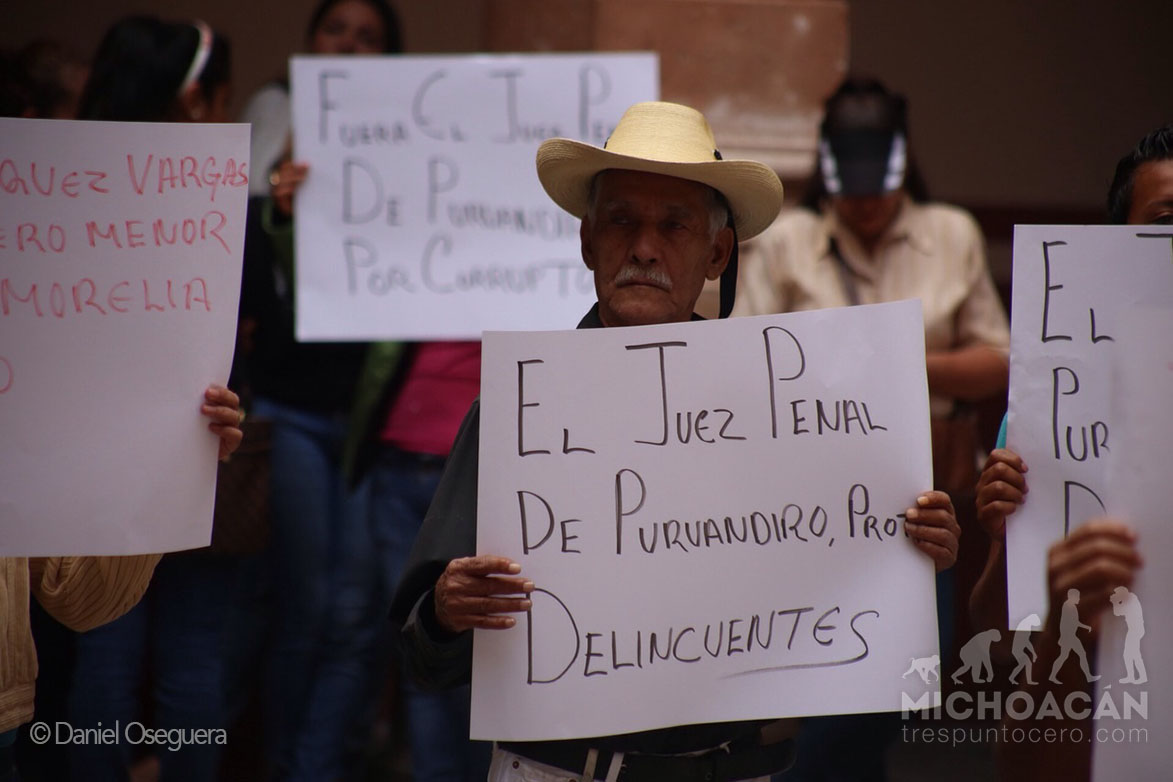 QUEZ VARGAS
ERO MENOR
MORELIA
FUERA EL JUEZ PE
DE PURUANDI
POR CORRUPTO
EL JUEZ PENAL
DE PURUANDIRO, PROT
DELINCUENTES
EL
PUR
D
©Daniel Oseguera
MICHOACÁN
trespuntocero.com